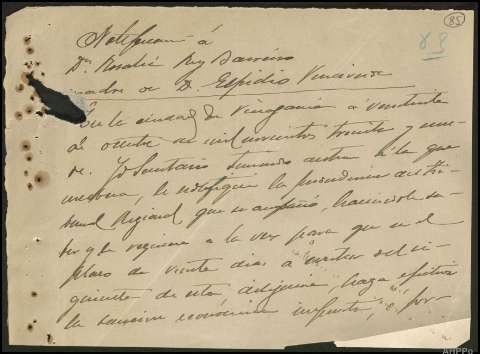 85
89
Notificacion á
Dª Rosalía Rey Barreiro
madre de D. Elpidio Villaverde
En la ciudad de Villagarcia á veintisiete
de octubre de mil novecientos treinta y nue-
ve. Yo Secretario teniendo ante mi a la que
, le notifiqué la providencia del Tri-
bunal Regional que , haciéndole sa-
ber y la requiero a la vez para que en el
plazo de veinte dias á contar del si-
guiente de esta diligencia, haga efectiva
la sancion económica impuesta, ó for-
AHPPo